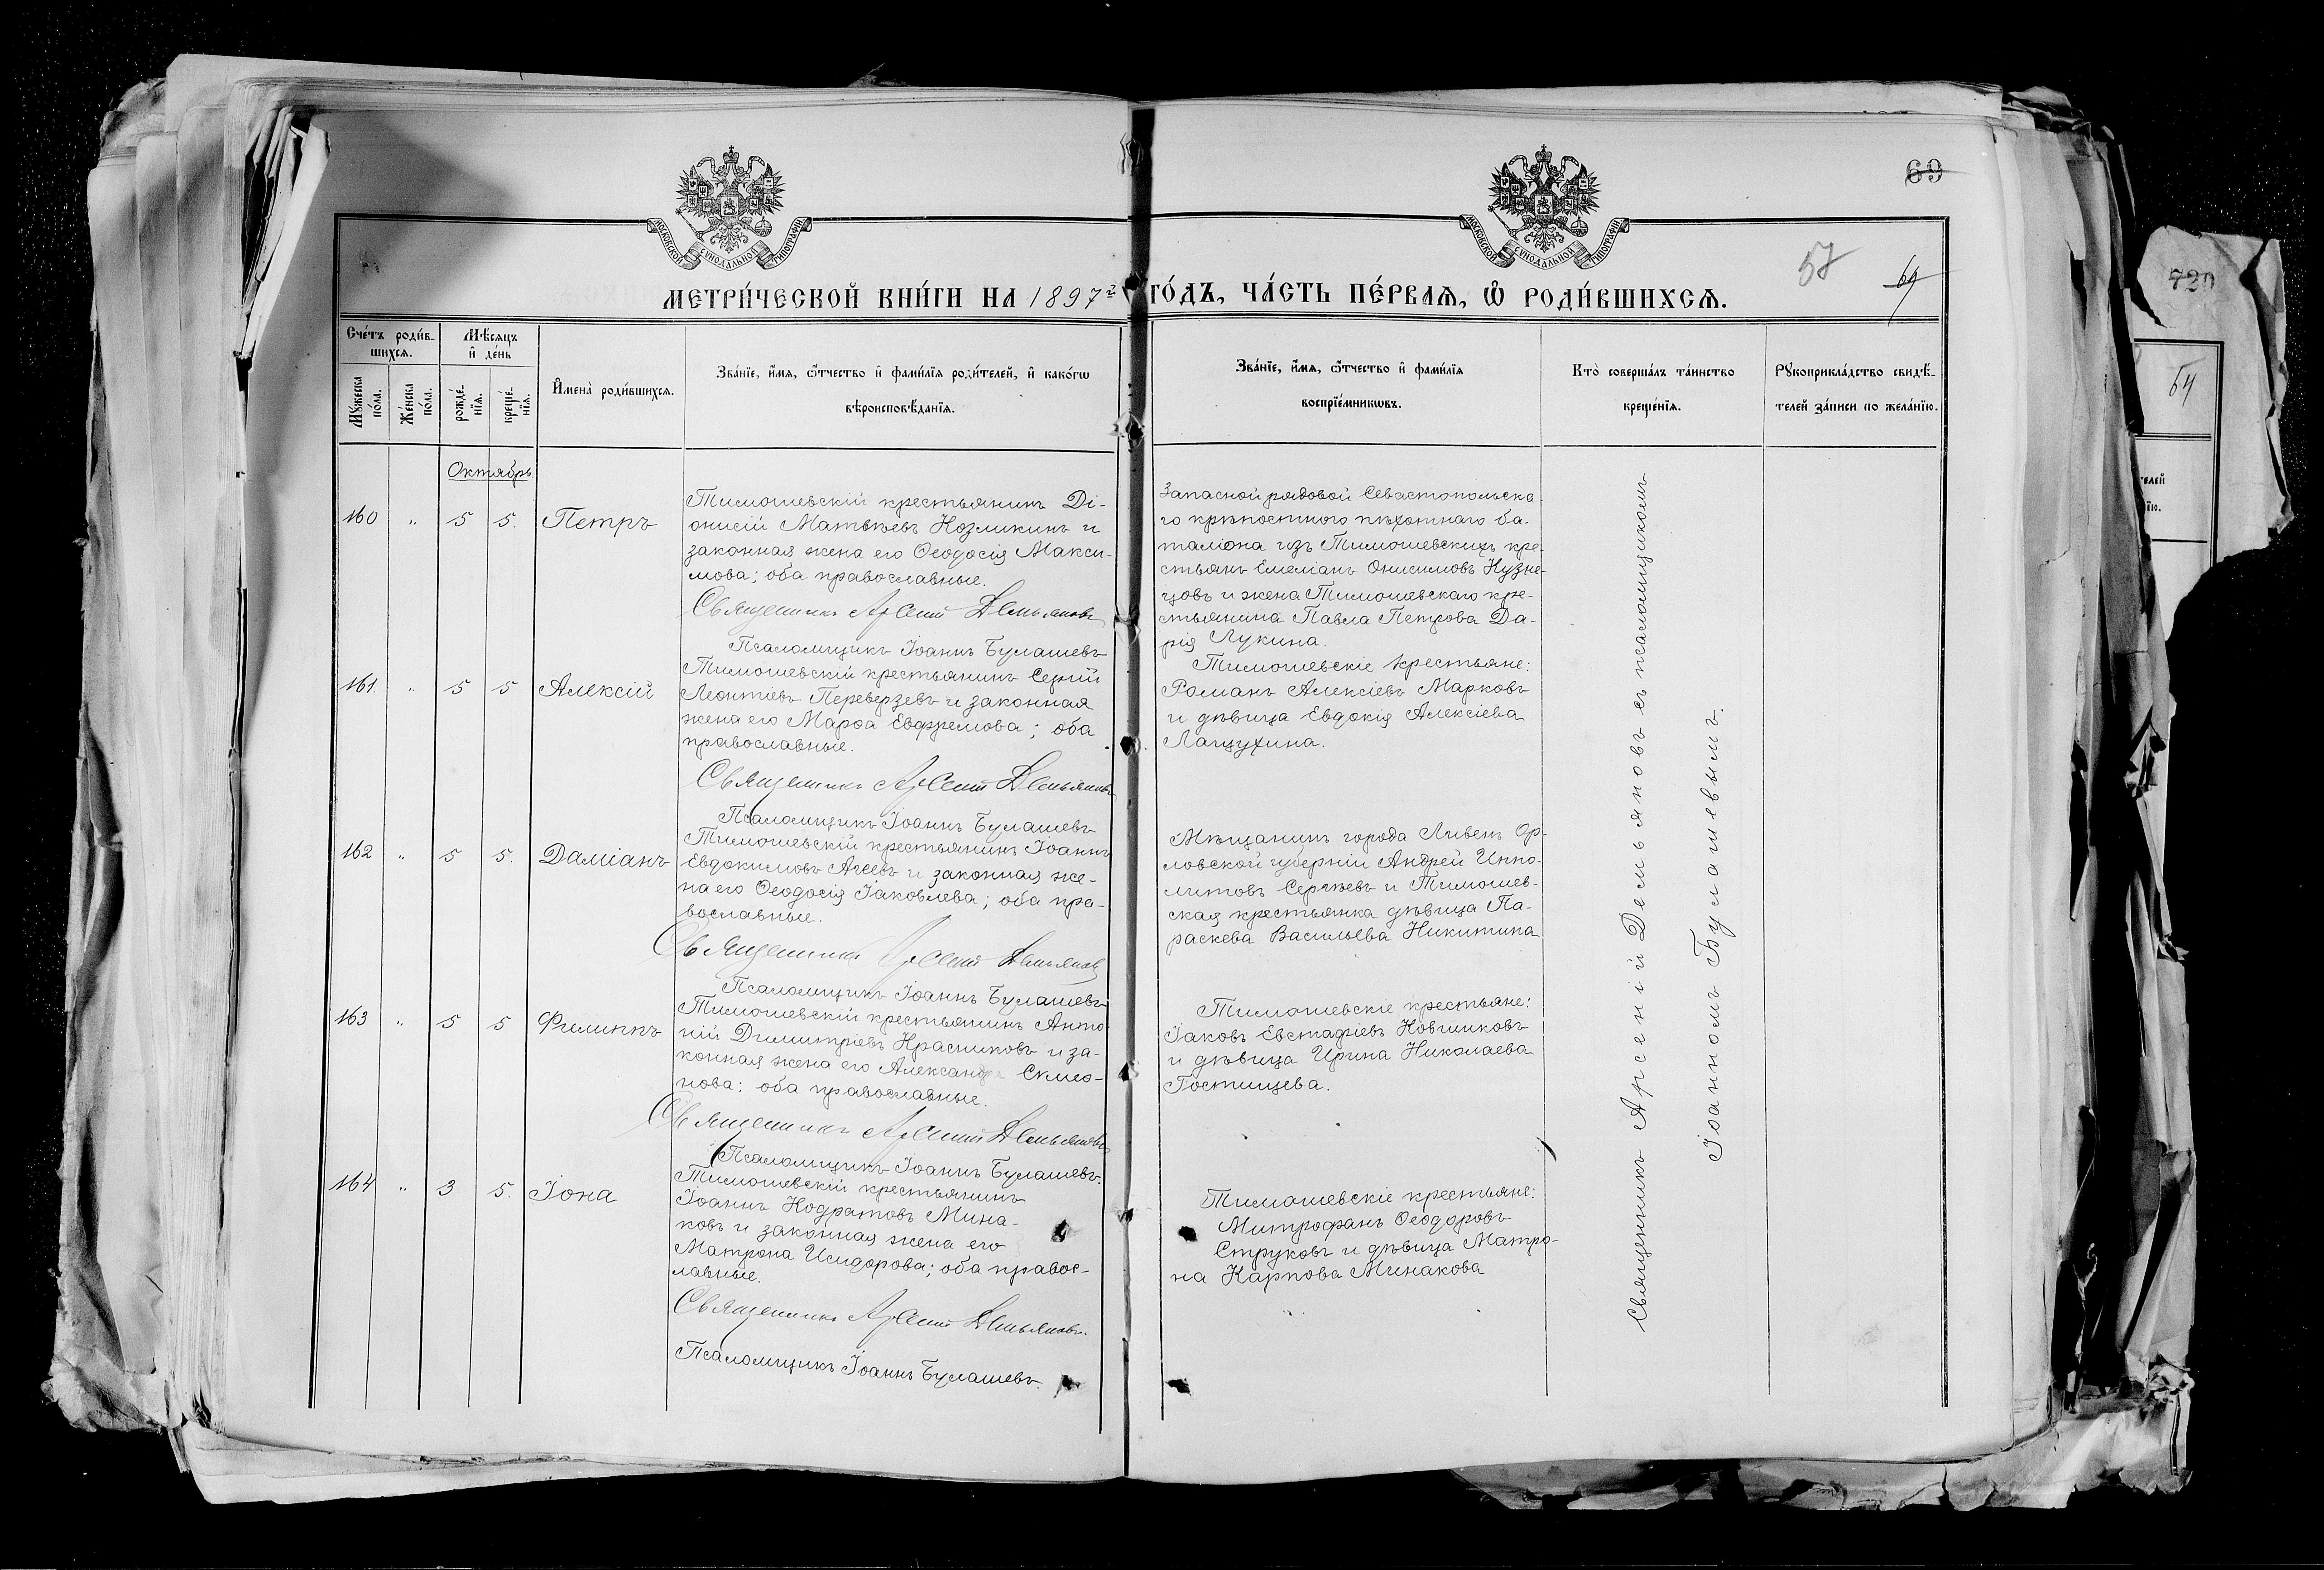 69
57
69
МОСКОВСКОЙ СѴНОДАЛЬНОЙ ТИПОГРАФІИ
МОСКОВСКОЙ СѴНОДАЛЬНОЙ ТИПОГРАФІИ
МЕТРИ́ЧЕСКОЙ КНИ́ГИ НА 1897 г
ГО́ДЪ, ЧА́СТЬ ПЕ́РВАЯ, Ѡ҆ РОДИ́ВШИХСЯ.
Сче́тъ роди́в-
шихся.
Му́жеска
по́ла.
Же́нска
по́ла.
Мѣ́сяцъ
и҆ де́нь
рожде́-
нїя.
креще́-
нїя.
И҆мена̀ роди́вшихся.
Зва́нїе, и҆́мя, ѻ҆́тчество и҆ фами́лїя роди́телей, и҆ како́гѡ
вѣроисповѣ́данїя.
Зва́нїе, и҆́мя, ѻ҆́тчество и҆ фами́лїя
воспрїе́мникѡвъ.
Кто̀ соверша́лъ та́инство
креще́нїя.
Рꙋкоприкла́дство свидѣ́-
телей за́писи по жела́нїю.
Октябрь
160 „ 5 5. Петръ
Тимошевскій крестьянинъ Ді-
онисій Матвѣевъ Козликинъ и
законная жена его Ѳеодосія Макси-
мова; оба православные.
Священникъ Арсеній Демьяновъ
Псаломщикъ Іоаннъ Булашевъ
Запасной рядовой Севастопольска-
го крѣпостного пѣхотнаго ба-
таліона изъ Тимошевскихъ кре-
стьянъ Емеліанъ Онисимовъ Кузне-
цовъ и жена Тимошевскаго кре-
стьянина Павла Петрова Да-
рія Лукина.
161 „ 5 5 Алексій
Тимошевскій крестьянинъ Сергій
Леонтіевъ Переверзевъ и законная
жена его Марѳа Евфремова; оба
православные.
Священникъ Арсеній Демьяновъ
Псаломщикъ Іоаннъ Булашевъ
Тимошевскіе крестьяне:
Романъ Алексіевъ Марковъ
и дѣвица Евдокія Алексіева
Лагутина.
162 „ 5 5. Даміанъ
Тимошевскій крестьянинъ Іоаннъ
Евдокимовъ Агеевъ и законная же-
на его Ѳеодосія Іаковлева; оба пра-
вославные.
Священникъ Арсеній Демьяновъ
Псаломщикъ Іоаннъ Булашевъ
Мѣщанинъ города Ливенъ Ор-
ловской губерніи Андрей Иппо-
литовъ Сергѣевъ и Тимошев-
ская крестьянка дѣвица Па-
раскева Васильева Никитина
163 „ 5 5 Филиппъ
Тимошевскій крестьянинъ Анто-
ній Димитріевъ Красниковъ и за-
конная жена его Александра Симео-
нова: оба православные.
Священникъ Арсеній Демьяновъ
Псаломщикъ Іоаннъ Булашевъ.
Тимошевскіе крестьяне:
Іаковъ Евстафіевъ Новиковъ
и дѣвица Ирина Николаева
Гостищева.
164 „ 3 5. Іона
Тимошевскій крестьянинъ
Іоаннъ Кодратовъ Мина-
ковъ и законная жена его
Матрона Исидорова; оба правос-
лавные.
Священникъ Арсеній Демьяновъ.
Псаломщикъ Іоаннъ Булашевъ.
Тимошевскіе крестьяне:
Митрофанъ Ѳеодоровъ
Струковъ и дѣвица Матро-
на Карпова Минакова
Священникъ Арсеній Демьяновъ съ псаломщикомъ
Іоанномъ Булашевымъ.
720
64
телей
їю.